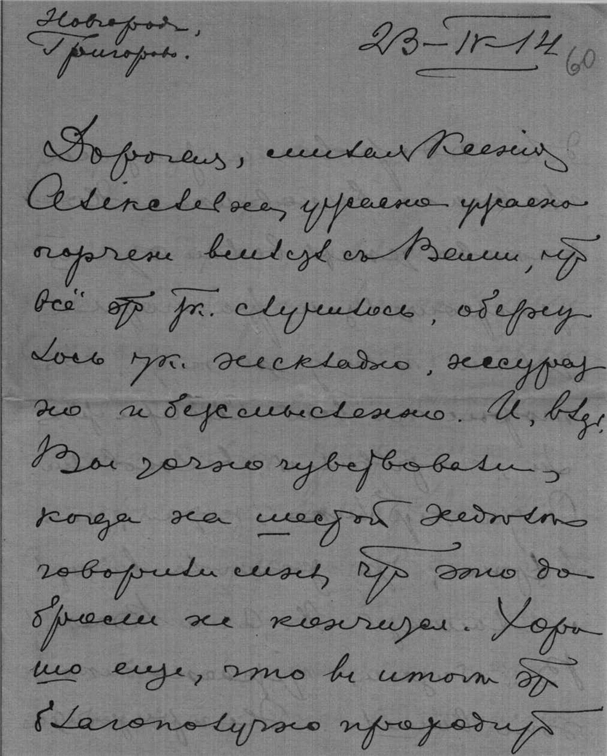 Новгородъ,
Григорово.
23–IV–14
60
Дорогая, милая Ксенія
Алексѣевна, ужасно ужасно
огорчен вмѣстѣ съ Вами, что
всё это так случилось, оберну
лось так нескладно, несураз
но и безсмысленно. И, вѣдь,
Вы точно чувствовали,
когда на шестой недѣлѣ
говорили мнѣ, что это до
бром не кончится. Хоро
шо еще, что в итогѣ это
благополучно проходит